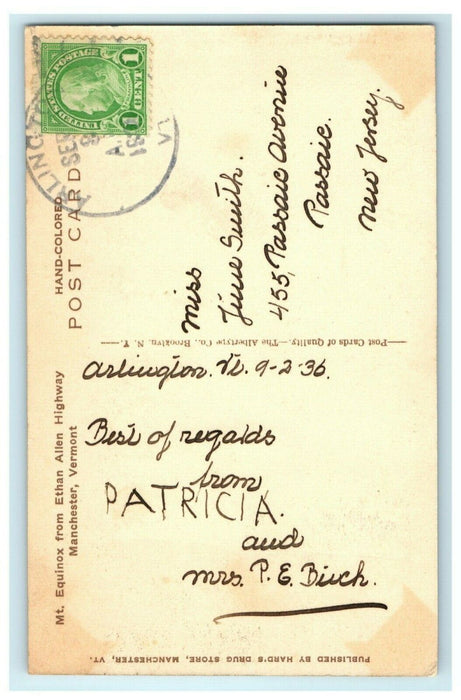 UNITED STATES POSTAGE
1 CENT 1
ARLINGT
SEP
A
VT
HAND-COLORED
POST CARD
Miss
June Smith.
455, Passaic Avenue
Passaic.
New Jersey.
—Post Cards of Quality.—The Albertype Co., Brooklyn, N. Y.—
Mt. Equinox from Ethan Allen Highway
Manchester, Vermont
Arlington. Vt. 9-2-36.
Best of regalds
from
PATRICIA.
and
Mrs. P. E. Birch.
PUBLISHED BY HARD'S DRUG STORE, MANCHESTER, VT.